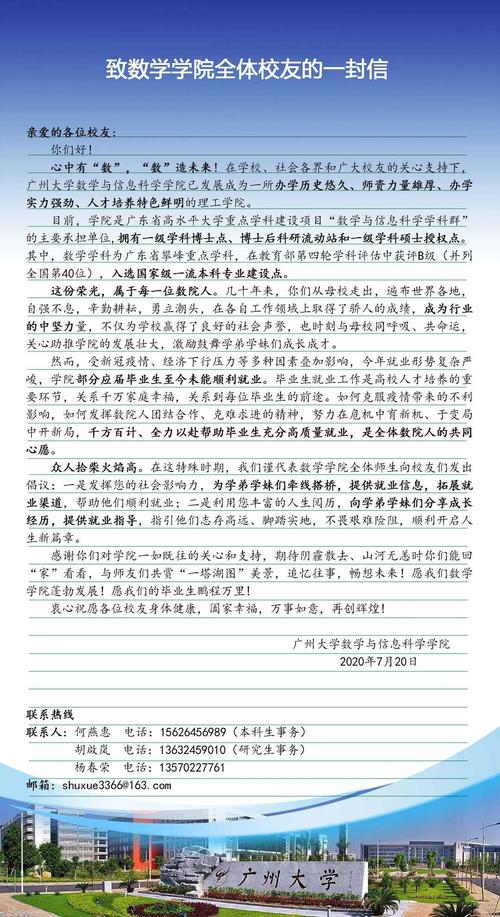 致数学学院全体校友的一封信
亲爱的各位校友：
你们好！
心中有“数”，“数”造未来！在学校、社会各界和广大校友的关心支持下，
广州大学数学与信息科学学院已发展成为一所办学历史悠久、师资力量雄厚、办学
实力强劲、人才培养特色鲜明的理工学院。
目前，学院是广东省高水平大学重点学科建设项目“数学与信息科学学科群”
的主要承担单位，拥有一级学科博士点、博士后科研流动站和一级学科硕士授权点。
其中，数学学科为广东省攀峰重点学科，在教育部第四轮学科评估中获评B级（并列
全国第40位），入选国家级一流本科专业建设点。
这份荣光，属于每一位数院人。几十年来，你们从母校走出，遍布世界各地，
自强不息，辛勤耕耘，勇立潮头，在各自工作领域上取得了骄人的成绩，成为行业
的中坚力量，不仅为学校赢得了良好的社会声誉，也时刻与母校同呼吸、共命运，
关心助推学院的发展壮大，激励鼓舞学弟学妹们成长成才。
然而，受新冠疫情、经济下行压力等多种因素叠加影响，今年就业形势复杂严
峻，学院部分应届毕业生至今未能顺利就业。毕业生就业工作是高校人才培养的重
要环节，关系千万家庭幸福，关系到每位毕业生的前途。如何克服疫情带来的不利
影响，如何发挥数院人团结合作、克难求进的精神，努力在危机中育新机、于变局
中开新局，千方百计、全力以赴帮助毕业生充分高质量就业，是全体数院人的共同
心愿。
众人拾柴火焰高。在这特殊时期，我们谨代表数学学院全体师生向校友们发出
倡议：一是发挥您的社会影响力，为学弟学妹们牵线搭桥，提供就业信息，拓展就
业渠道，帮助他们顺利就业；二是利用您丰富的人生阅历，向学弟学妹们分享成长
经历，提供就业指导，指引他们志存高远、脚踏实地，不畏艰难险阻，顺利开启人
生新篇章。
感谢你们对学院一如既往的关心和支持，期待阴霾散去、山河无恙时你们能回
“家”看看，与师友们共赏“一塔湖图”美景，追忆往事，畅想未来！愿我们数学
学院蓬勃发展！愿我们的毕业生鹏程万里！
衷心祝愿各位校友身体健康，阖家幸福，万事如意，再创辉煌！
广州大学数学与信息科学学院
2020年7月20日
联系热线
联系人：何燕惠 电话：15626456989（本科生事务）
胡啟岚 电话：13632459010（研究生事务）
杨春荣 电话：13570227761
邮箱：shuxue3366@163.com
广州大学